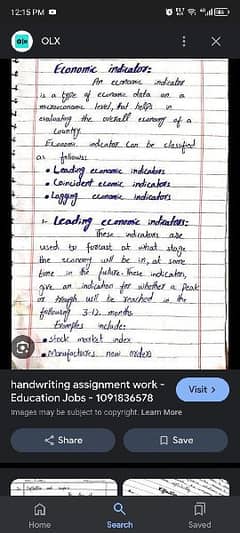 12:15 PM
OLX
Economic indicator:
An economic indicator
is a type of economic data on a
macroeconomic level, that helps in
evaluating the overall economy of a
country.
Economic indicator can be classified
as follows:
• Leading economic indicators
• Coincident economic indicators
• Lagging economic indicators
1- Leading economic indicators:
These indicators are
used to forcast at what stage
the economy will be in, at some
time in the future. These indicators,
give an indication for whether a peak
or trough will be reached in the
following 3-12 months
Examples include:
• stock market index
• Manufactures new orders
handwriting assignment work -
Education Jobs - 1091836578
Visit >
Images may be subject to copyright. Learn More
Share
Save
Home
Search
Saved